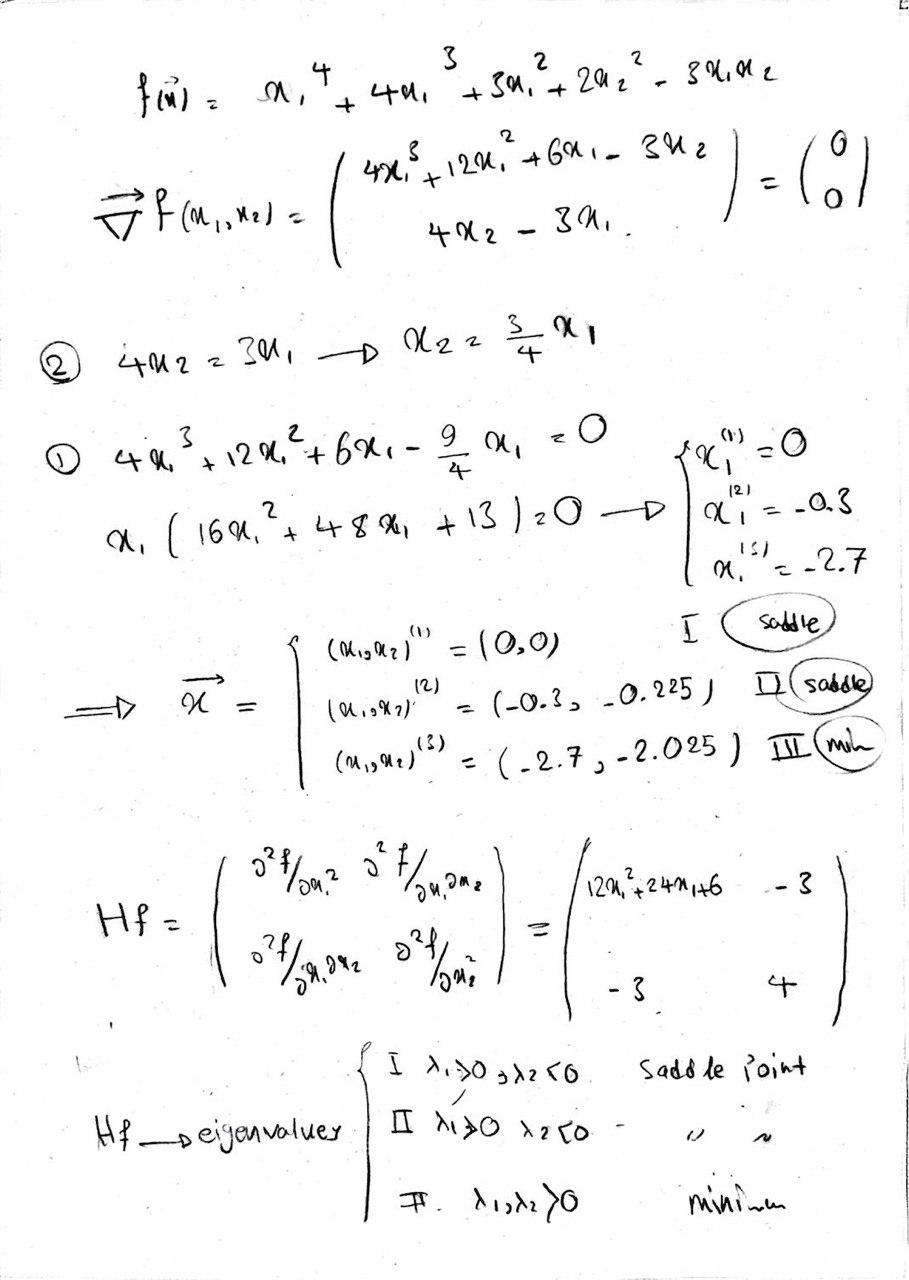 f(x⃗) = x₁⁴ + 4x₁³ + 3x₁² + 2x₂² - 3x₁x₂
∇⃗f(x₁,x₂) = ( 4x₁³ + 12x₁² + 6x₁ - 3x₂ ; 4x₂ - 3x₁. ) = ( 0 ; 0 )
② 4x₂ = 3x₁ → x₂ = 3/4 x₁
① 4x₁³ + 12x₁² + 6x₁ - 9/4 x₁ = 0
x₁ ( 16x₁² + 48x₁ + 13 ) = 0 → { x₁⁽¹⁾ = 0
x₁⁽²⁾ = -0.3
x₁⁽³⁾ = -2.7
⇒ x⃗ = { (x₁,x₂)⁽¹⁾ = (0,0) I saddle
(x₁,x₂)⁽²⁾ = (-0.3, -0.225) II saddle
(x₁,x₂)⁽³⁾ = (-2.7, -2.025) III min
Hf = ( ∂²f/∂x₁² ∂²f/∂x₁∂x₂ ; ∂²f/∂x₁∂x₂ ∂²f/∂x₂² ) = ( 12x₁²+24x₁+6 -3 ; -3 4 )
Hf → eigenvalues { I λ₁>0, λ₂<0 saddle Point
II λ₁>0 λ₂<0 - " "
II. λ₁,λ₂>0 minimum